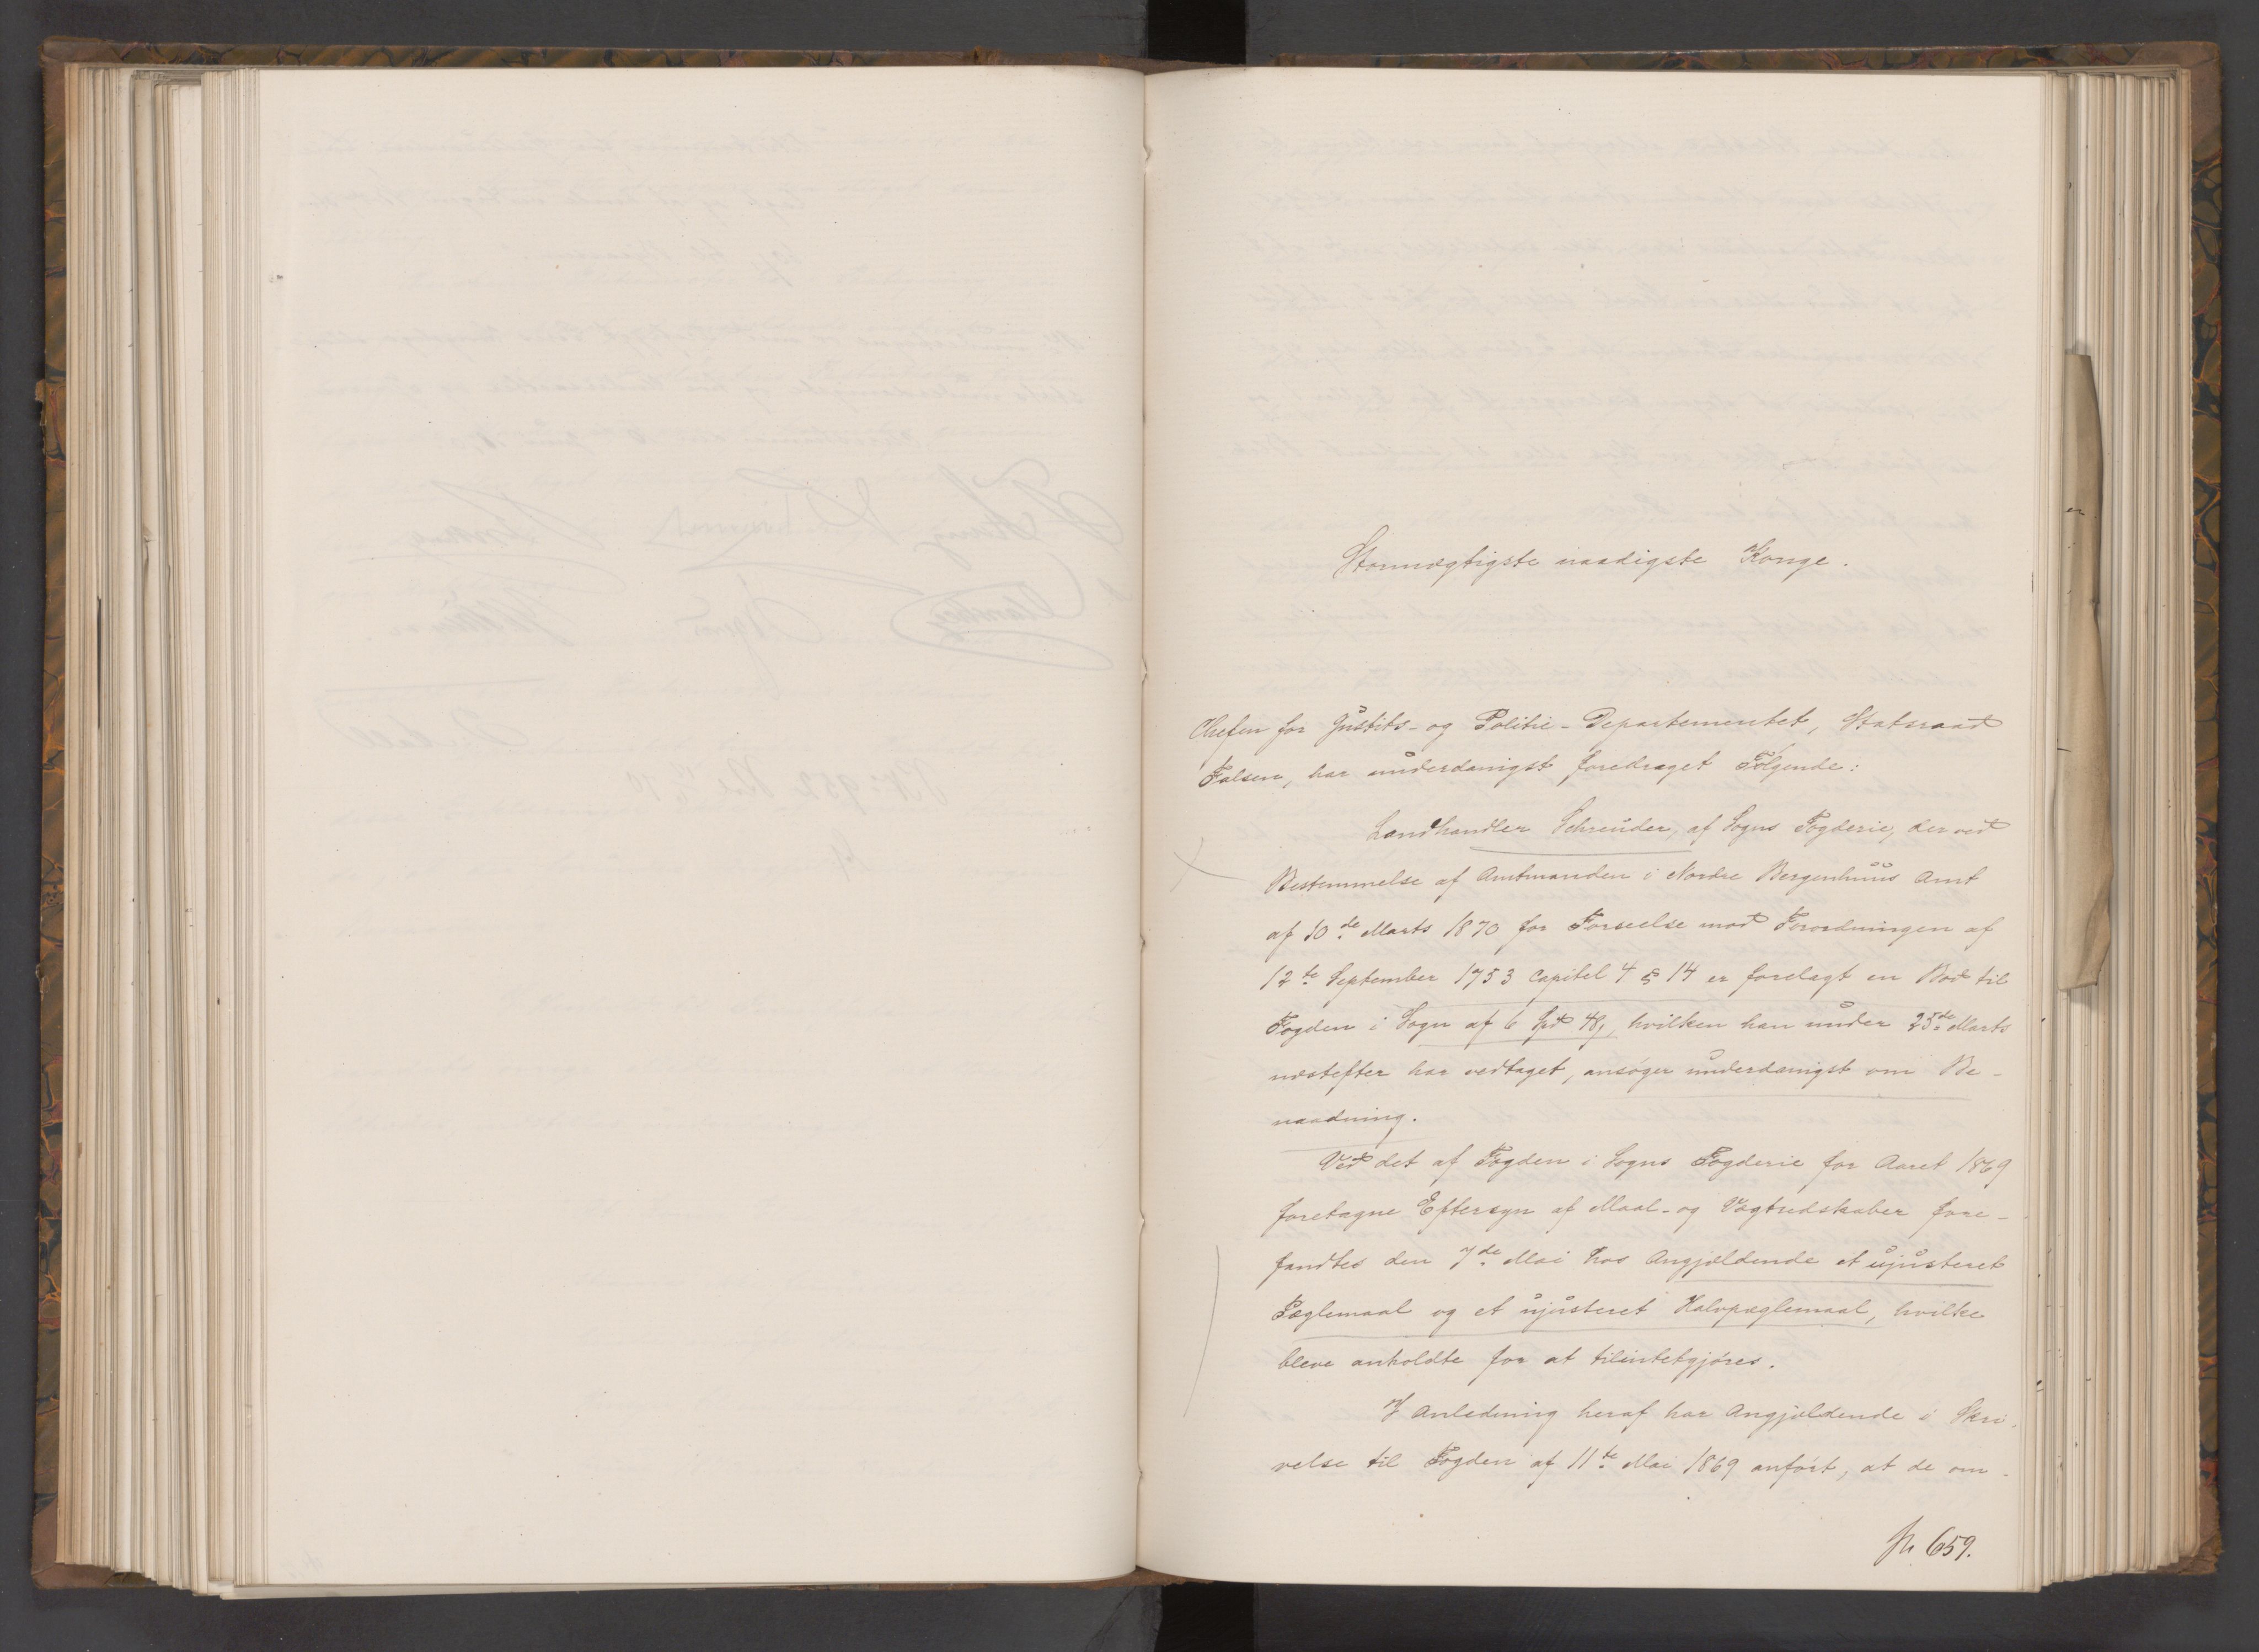 Stormægtigste naadigste Konge.
Chefen for Justits- og Politie-Departementet, Statsraad
Falsen, har underdanigst foredraget Følgende:
Landhandler Schreuder, af Sogns Fogderie, der ved
Bestemmelse af Amtmanden i Nordre Bergenhuus Amt
af 10de Marts 1870 for Forseelse mod Forordningen af
12te September 1753 Capitel 4 § 14 er forelagt en Bod til
Fogden i Sogn af 6 Spd 48, hvilken han under 25de Marts
næstefter har vedtaget, ansøger underdanigst om Be-
naadning.
Ved det af Fogden i Sogns Fogderie for Aaret 1869
foretagne Eftersyn af Maal- og Vægtredskaber fore-
fandtes den 7de Mai hos Angjældende et ujusteret
Pæglemaal og et ujusteret Halvpæglemaal, hvilke
bleve anholdte for at tilintetgjøres.
I Anledning heraf har Angjældende i Skri-
velse til Fogden af 11te Mai 1869 anført, at de om-
659.